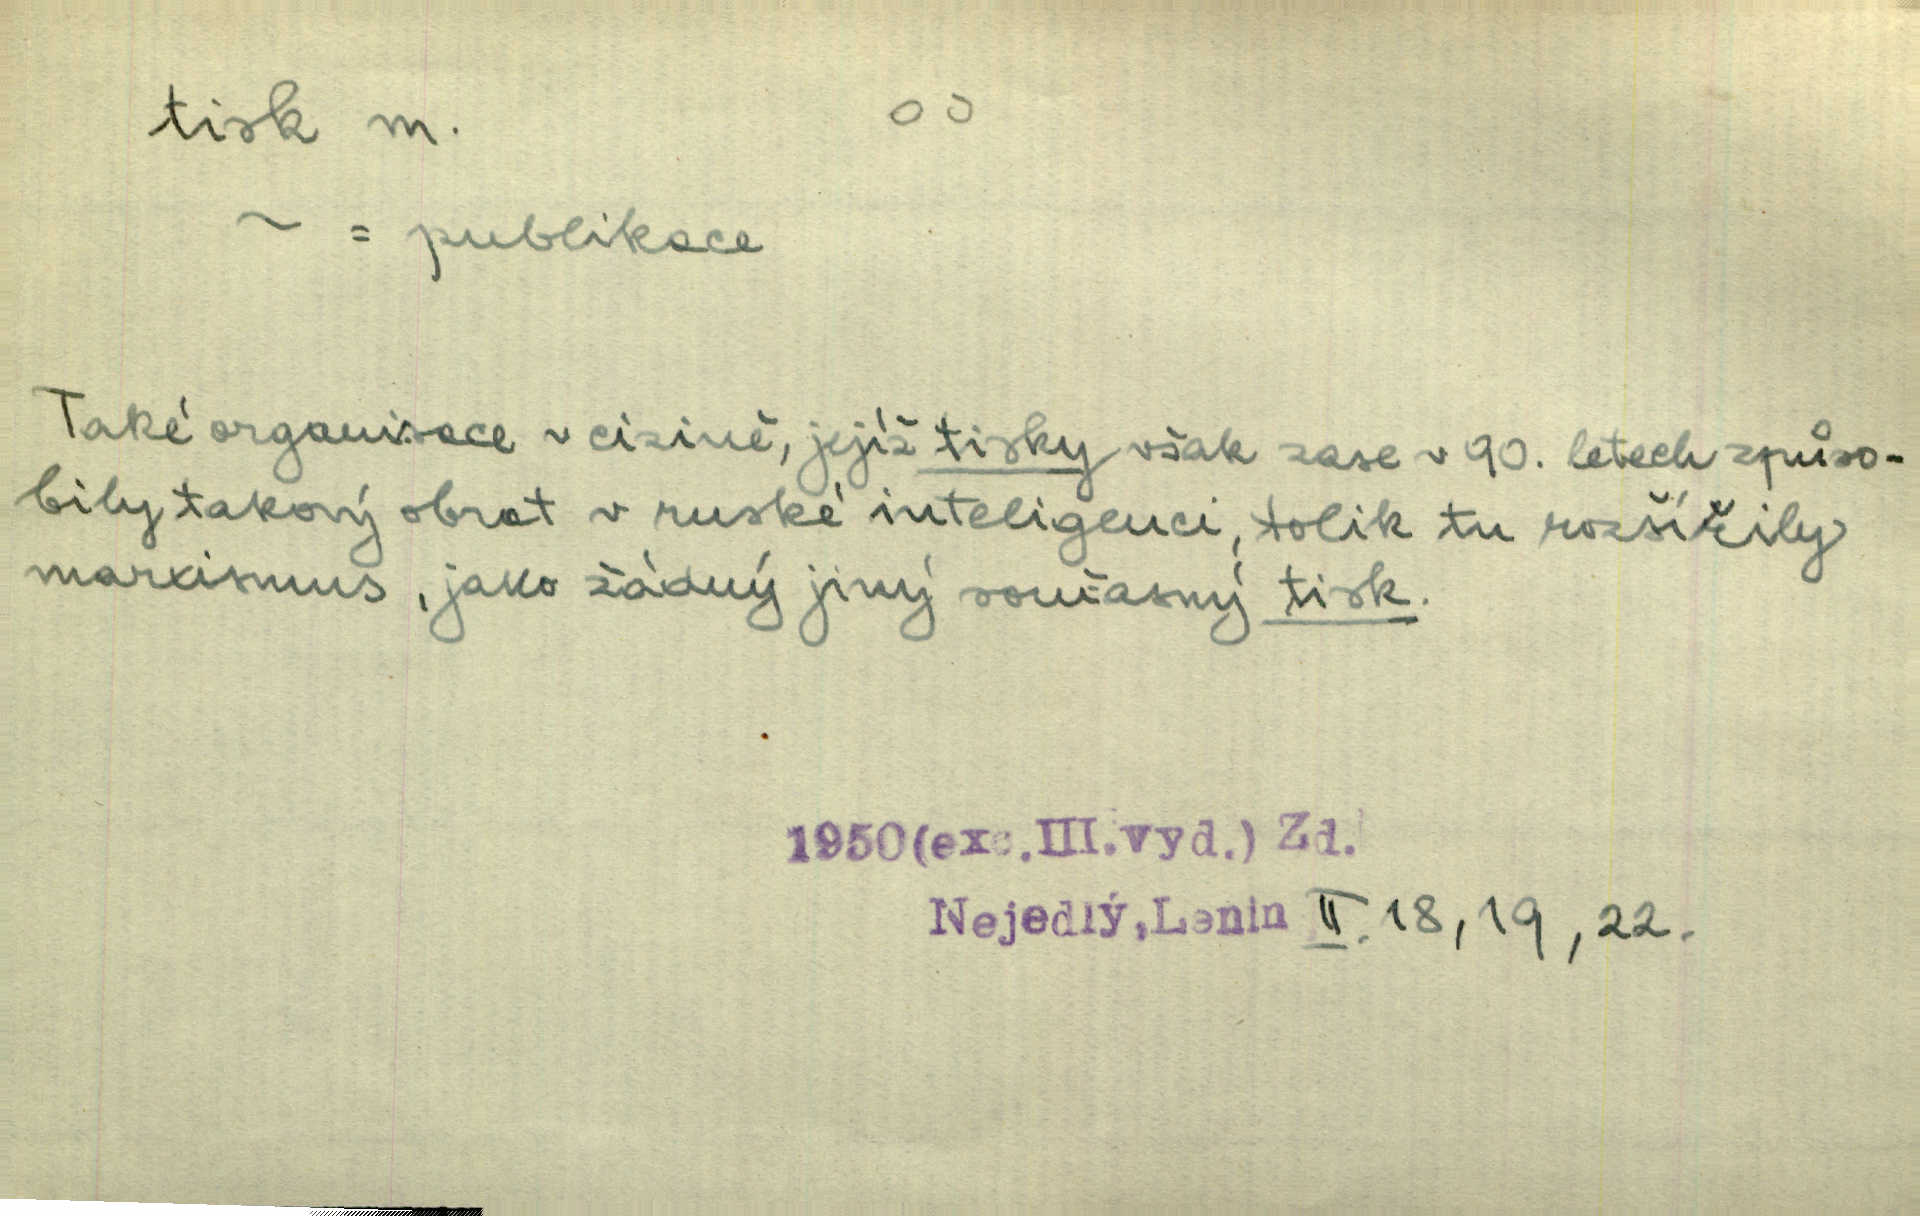 tisk m. oo
~ = publikace
Také organisace v cizině, jejíž tisky však zase v 90. letech způso-
bily takový obrat v ruské inteligenci, tolik tu rozšířily
marxismus, jako žádný jiný současný tisk.
1950(exc.III.vyd.) Zd.
Nejedlý, Lenin II. 18, 19, 22.